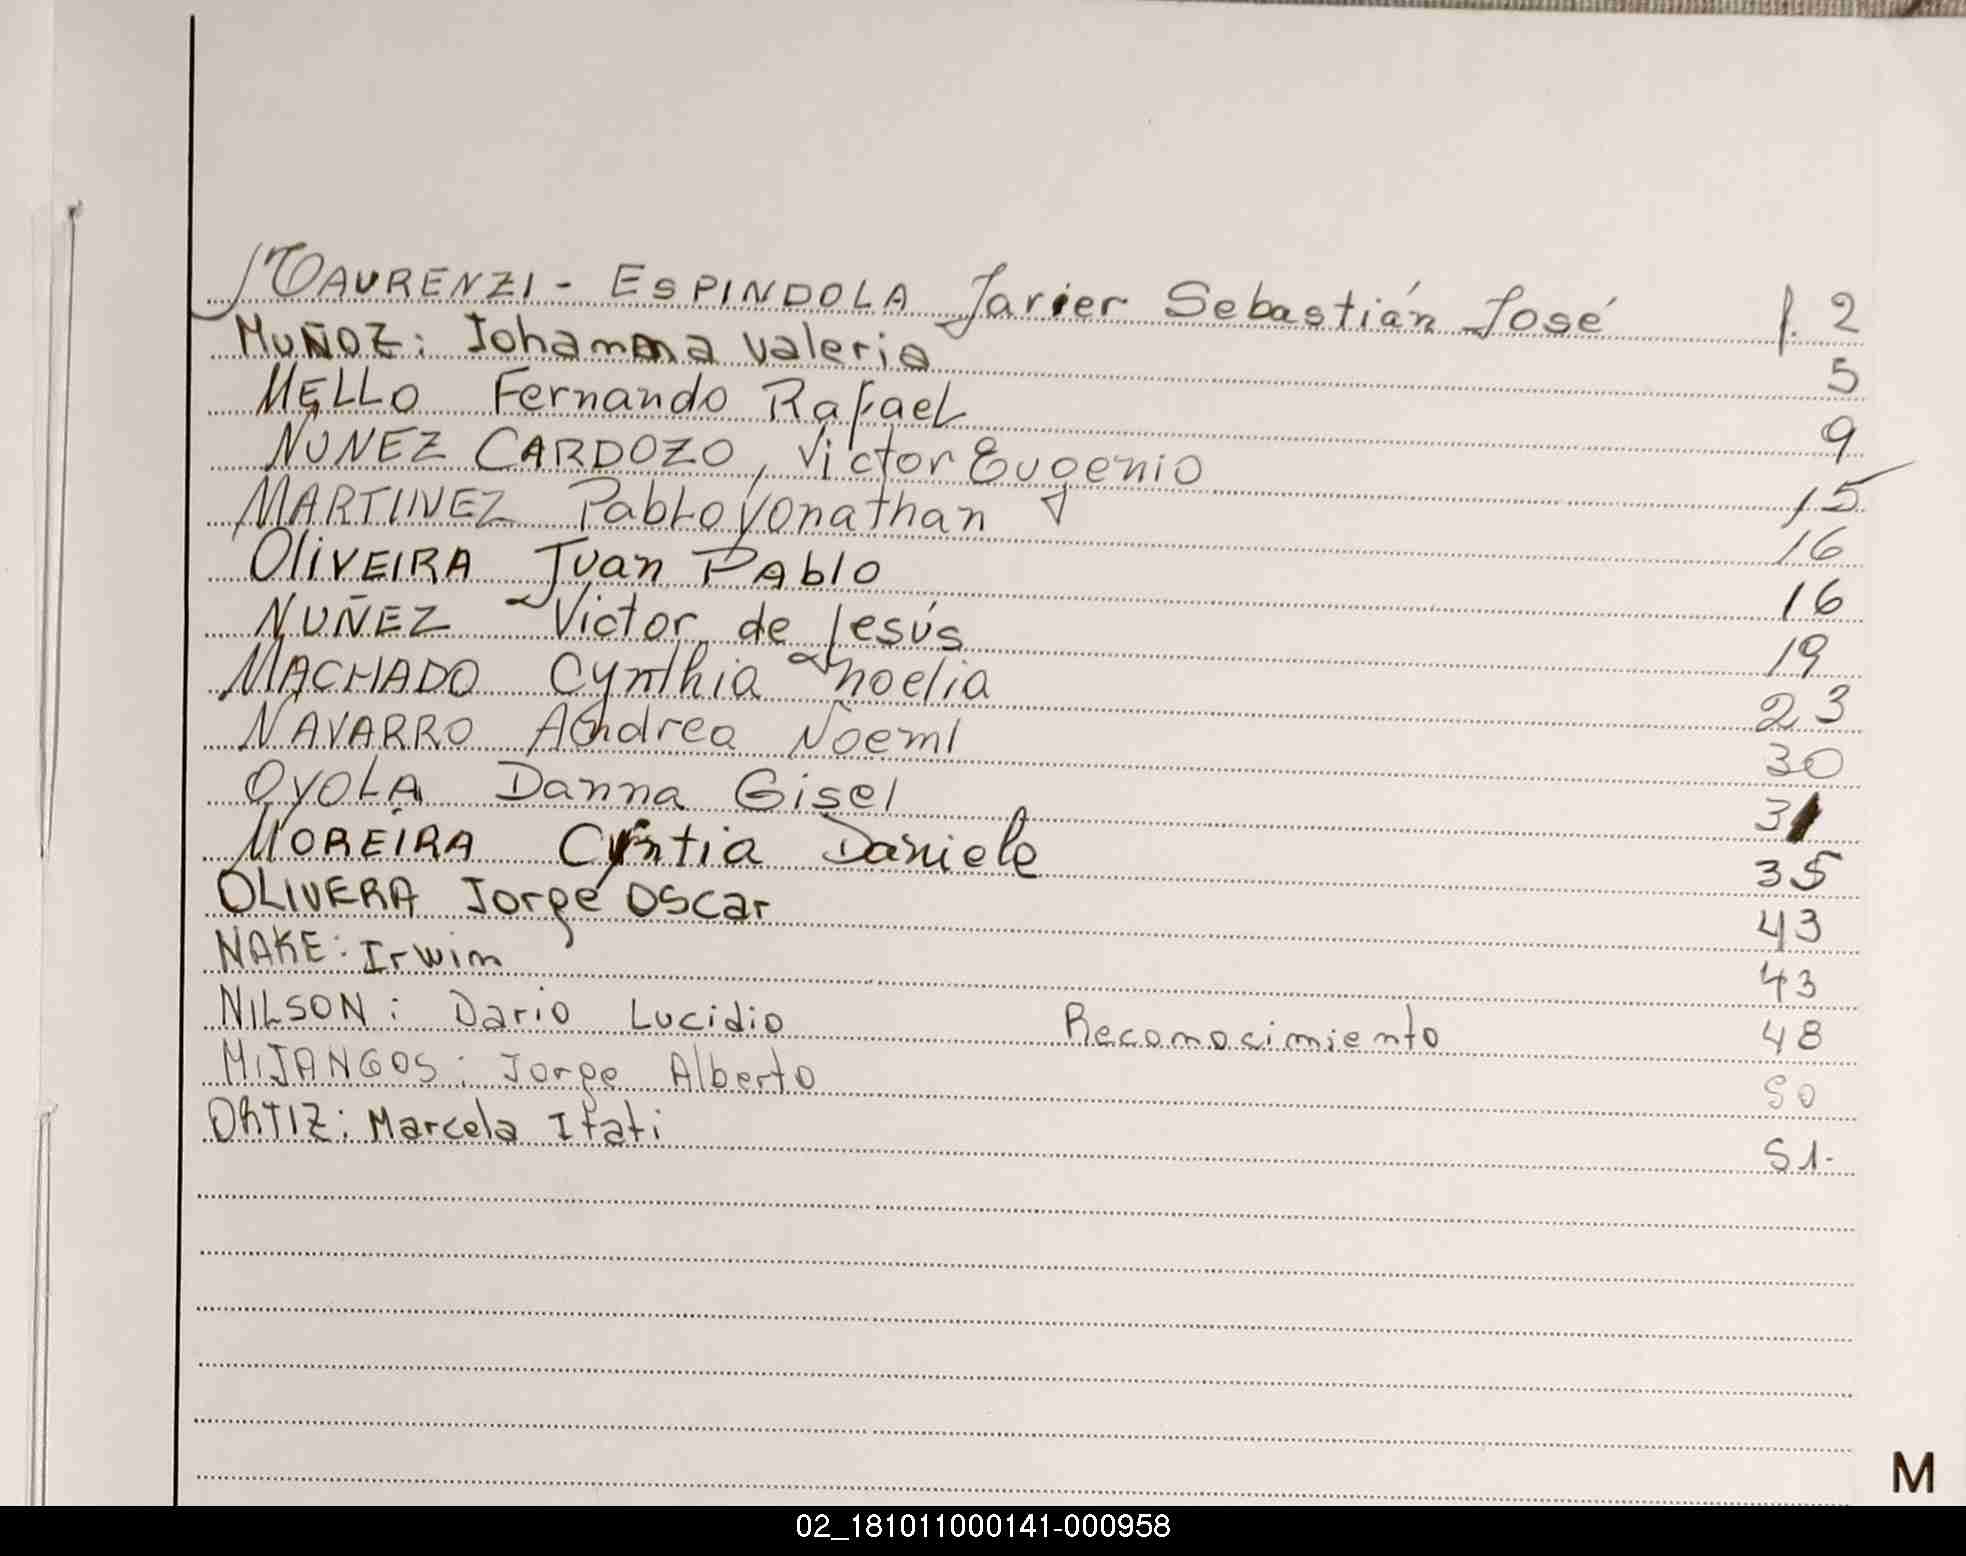 MAURENZI - ESPINDOLA Javier Sebastián José f. 2
MUÑOZ: Johanna Valeria 5
MELLO Fernando Rafael 9
NUNEZ CARDOZO, Victor Eugenio 15
MARTINEZ Pablo Yonathan 16
OLIVEIRA Juan Pablo 16
NUÑEZ Victor de Jesús 19
MACHADO Cynthia Noelia 23
NAVARRO Andrea Noemi 30
OYOLA Danna Gisel 31
MOREIRA Cyntia Daniele 35
OLIVERA Jorge Oscar 43
NAKE: Irwin 43
NILSON: Dario Lucidio Reconocimiento 48
MIJANGOS: Jorge Alberto 50
ORTIZ: Marcela Itati 51.
M
02_181011000141-000958